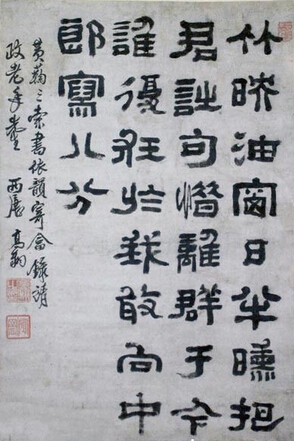 竹映油窗日半曛把
君詩句惜離群于今
誰復狂於我敢向中
郎寫八分
黃菊三索書依韻寄會錄請
政老年臺 西唐高翔